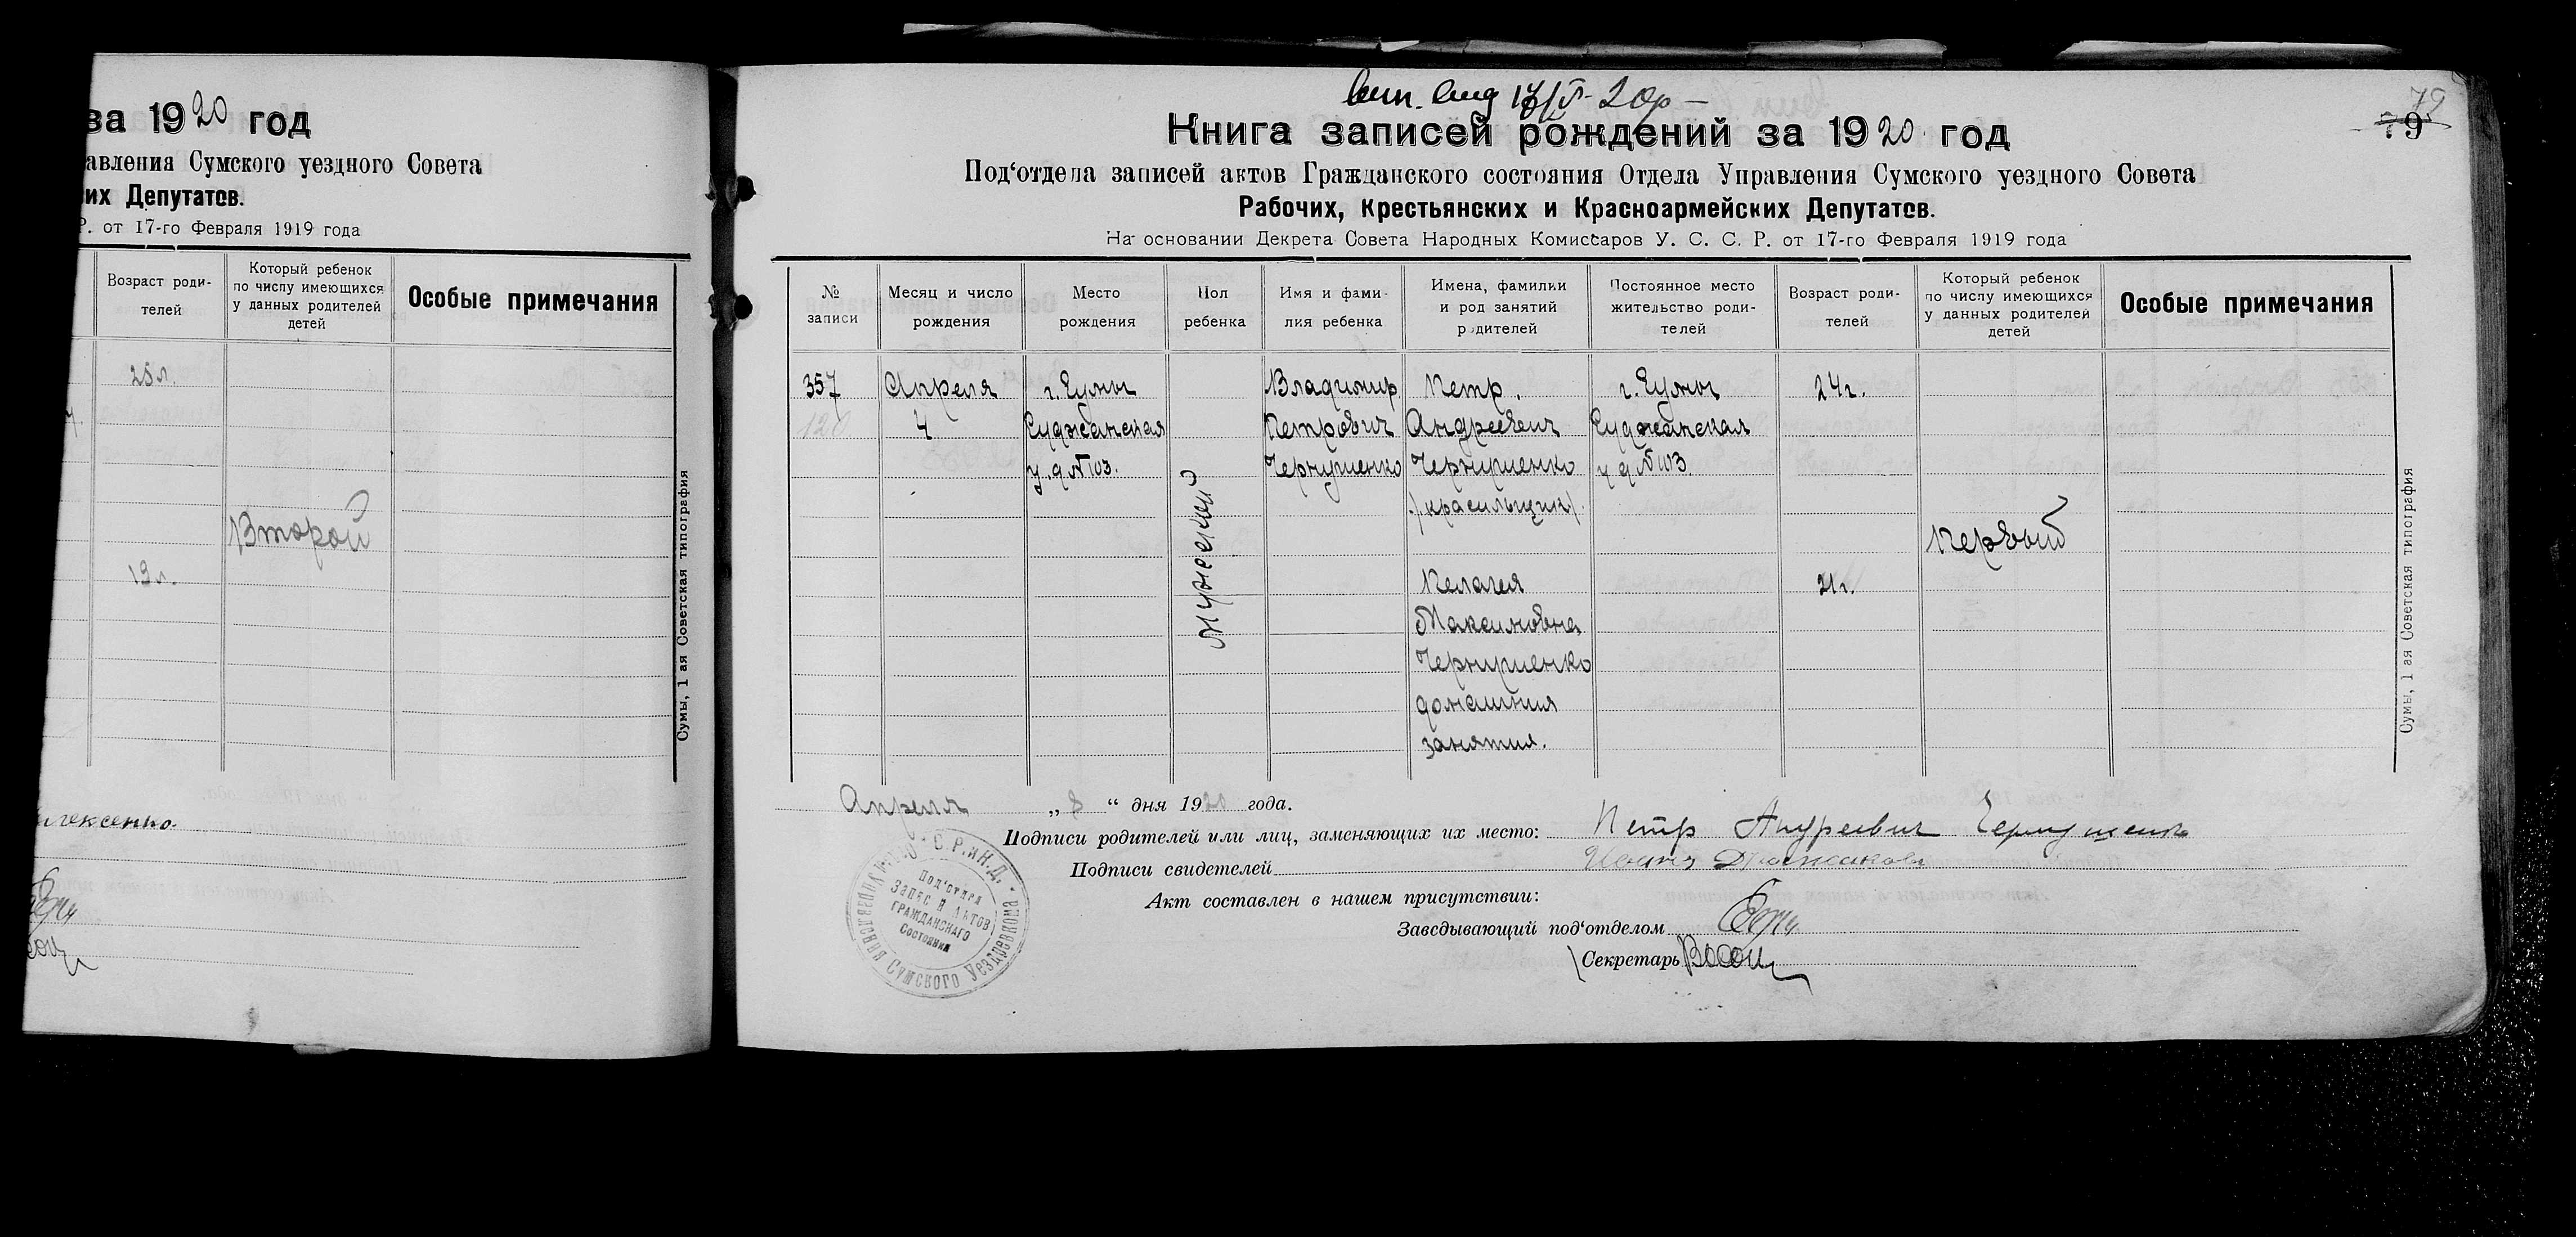 за 1920 год
авления Сумского уездного Совета
их Депутатов.
Р. от 17-го Февраля 1919 года
Возраст роди-
телей
Который ребенок
по числу имеющихся
у данных родителей
детей
Особые примечания
25 л.
Второй
19 л.
Сумы, 1 ая Советская типография
лексенко
79
Книга записей рождений за 1920 год
Под‘отдела записей актов Гражданского состояния Отдела Управления Сумского уездного Совета
Рабочих, Крестьянских и Красноармейских Депутатов.
На основании Декрета Совета Народных Комиссаров У. С. С. Р. от 17-го Февраля 1919 года
№
записи
Месяц и число
рождения
Место
рождения
Пол
ребенка
Имя и фами-
лия ребенка
Имена, фамилии
и род занятий
родителей
Постоянное место
жительство роди-
телей
Возраст роди-
телей
Который ребенок
по числу имеющихся
у данных родителей
детей
Особые примечания
357
120
Апреля
4
г. Сумы
Суджанская
у. д №103.
Мужеский
Владимир
Петрович
Чернушенко
Петр.
Андреевич
Чернушенко
/красильщик/.
Пелагея
Максимовна
Чернушенко
домашния
занятия.
г. Сумы
Суджанская
у д №103
24 г.
21 г.
Первый
Сумы, 1 ая Советская типография
Апреля „ 8 “ дня 1920 года.
Подписи родителей или лиц, заменяющих их место: Петр Андреевич Чернушенко
Подписи свидетелей
Акт составлен в нашем присутствии:
Заведывающий под‘отделом
Секретарь
С.Р. и Н.Д.
Сумского Уездревкома
Под‘отдел
Записей Актов
Гражданскаго
Состояния